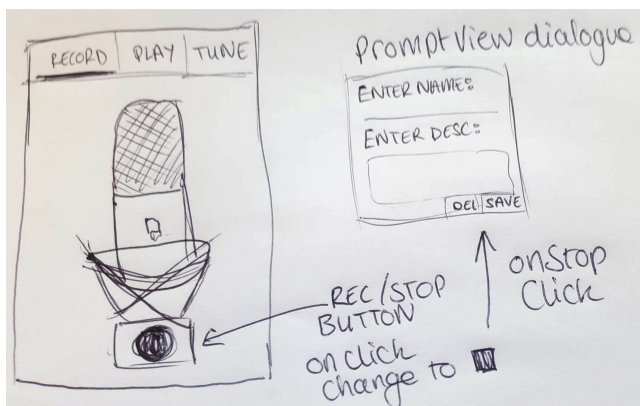 RECORD PLAY TUNE
PromptView dialogue
ENTER NAME:
ENTER DESC:
DEL SAVE
onstop
click
REC/STOP
BUTTON
on click
change to